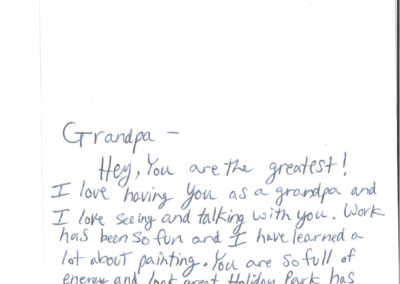 Grandpa -
Hey, You are the greatest!
I love having you as a grandpa and
I love seeing and talking with you. Work
has been so fun and I have learned a
lot about painting. You are so full of
energy and look great. Holiday Park has